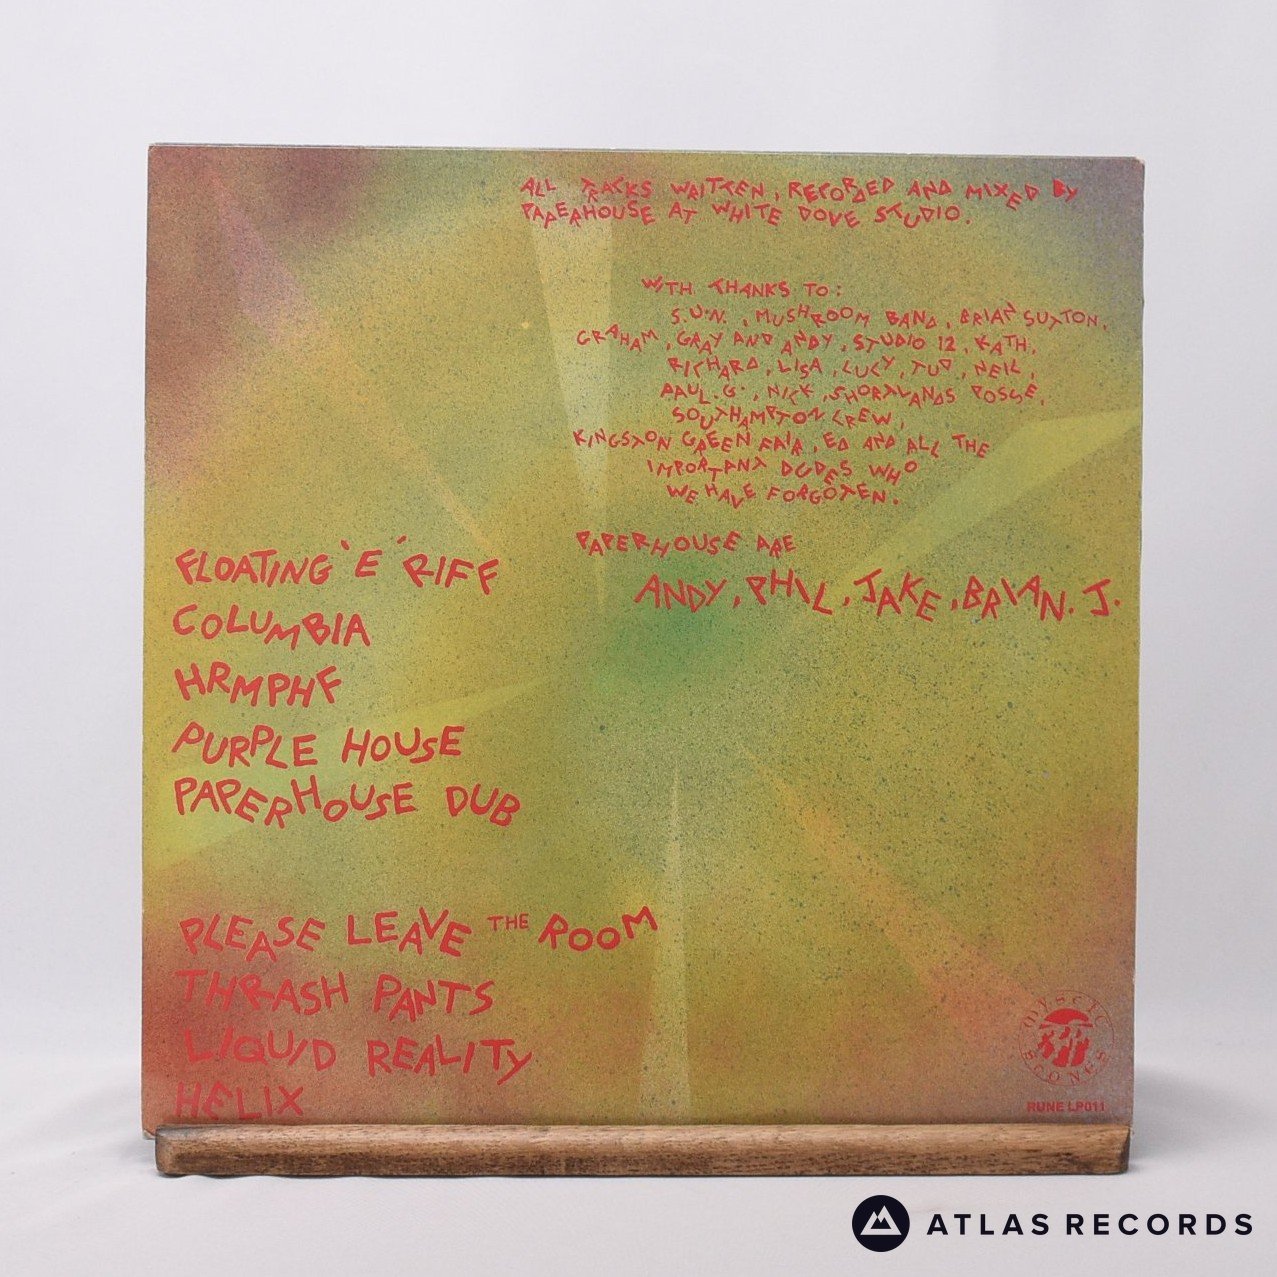 ALL TRACKS WRITTEN, RECORDED AND MIXED BY
PAPERHOUSE AT WHITE DOVE STUDIO.
WITH THANKS TO:
S.U.N., MUSHROOM BAND, BRIAN SUTTON,
GRAHAM, GRAY AND ANDY, STUDIO 12, KATH,
RICHARD, LISA, LUCY, TUD, NEIL,
PAUL.G., NICK, SHORTLANDS POSSE,
SOUTHAMPTON CREW,
KINGSTON GREEN FAIR, ED AND ALL THE
IMPORTANT DUDES WHO
WE HAVE FORGOTEN.
PAPERHOUSE ARE
ANDY, PHIL, JAKE, BRIAN. J.
FLOATING 'E' RIFF
COLUMBIA
HRMPHF
PURPLE HOUSE
PAPERHOUSE DUB
PLEASE LEAVE THE ROOM
THRASH PANTS
LIQUID REALITY
HELIX
MYSTIC
STONES
RUNE LP011
ATLAS RECORDS